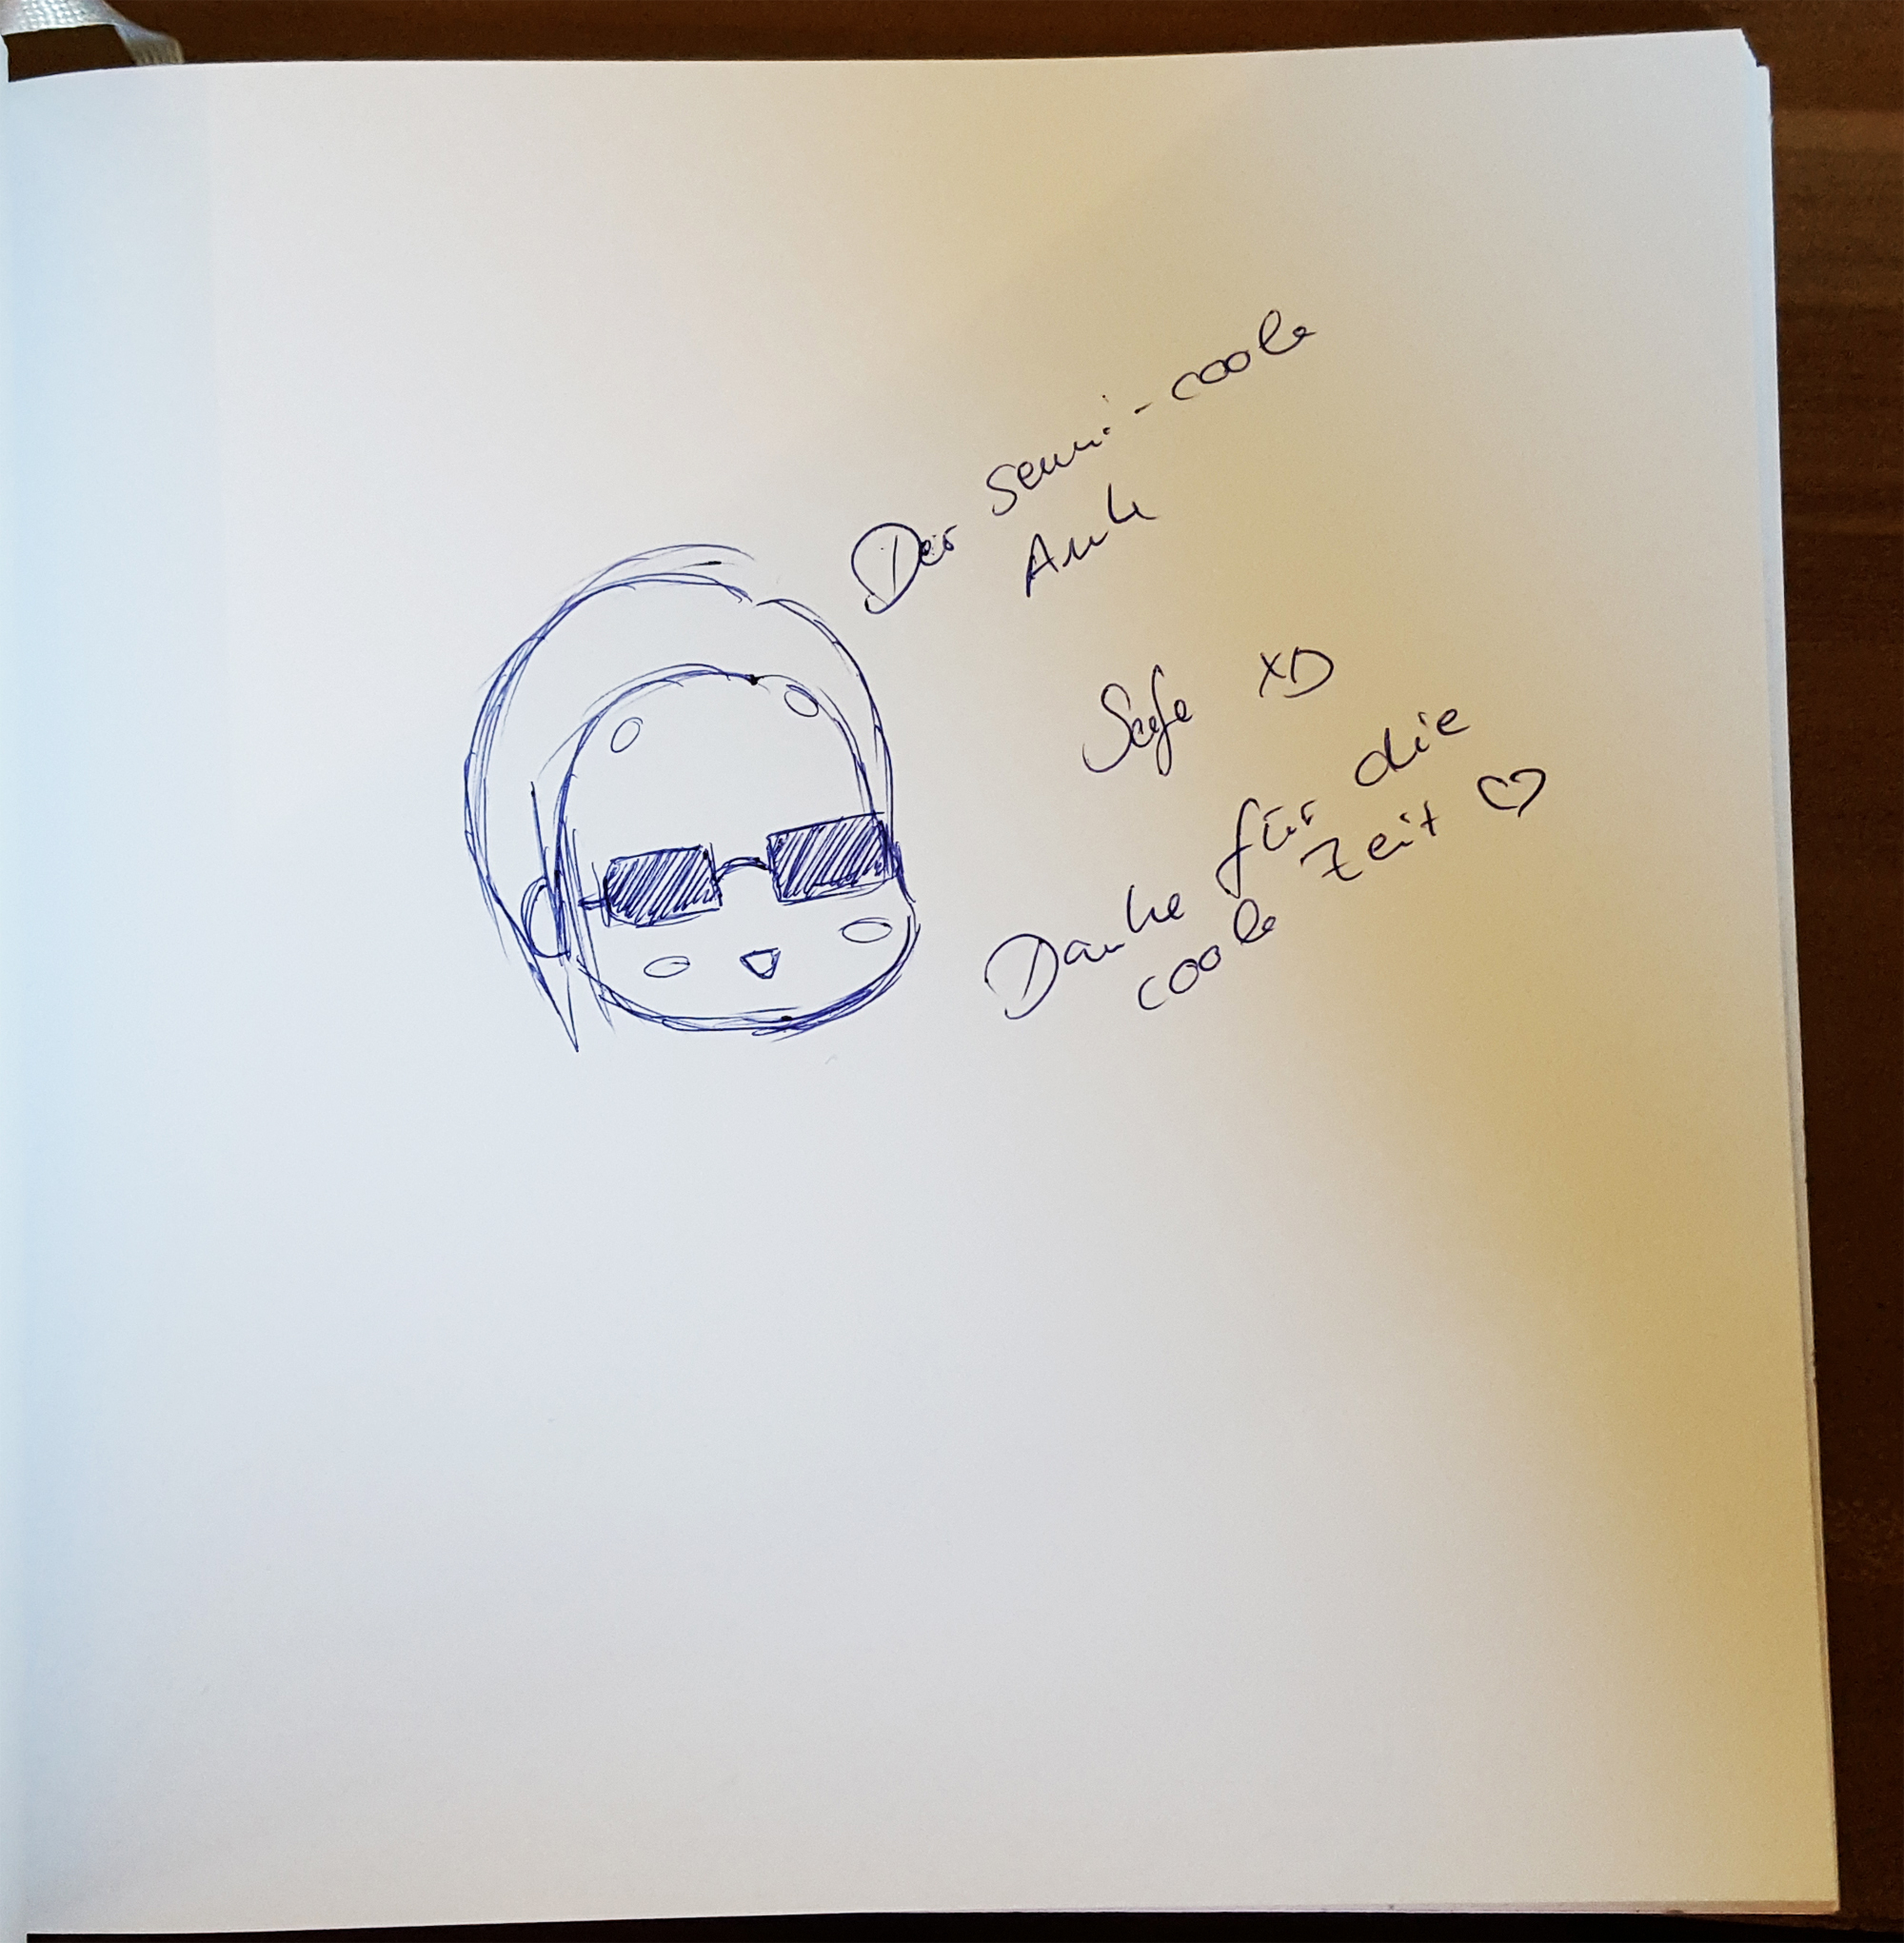 Der semi-coole
Safe XD
Danke für die
coole Zeit ♡